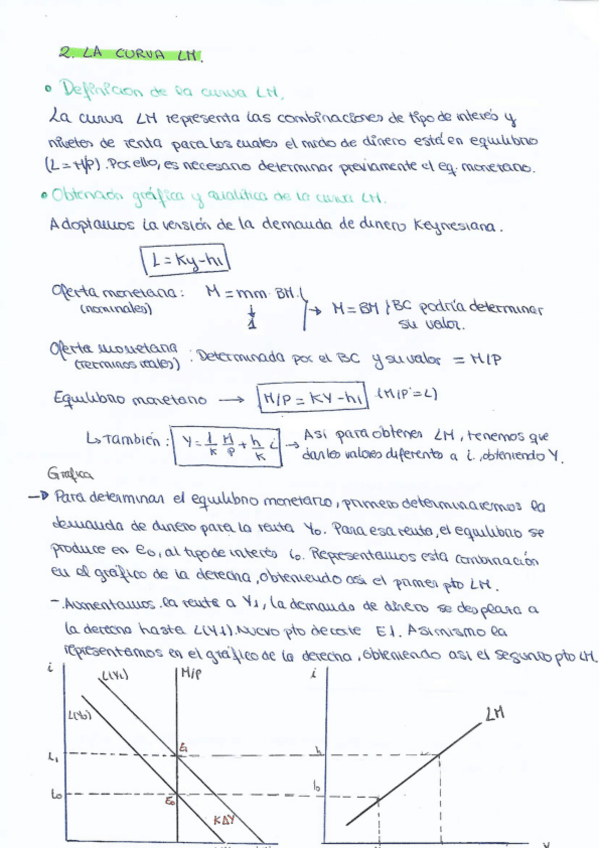 2. LA CURVA LM.
• Definición de la curva LM.
La curva LM representa las combinaciones de tipo de interés y
niveles de renta para los cuales el mcdo de dinero está en equilibrio
(L = M/P). Por ello, es necesario determinar previamente el eq. monetario.
• Obtención gráfica y analítica de la curva LM.
Adoptamos la versión de la demanda de dinero Keynesiana.
L = Ky-hi
Oferta monetaria: M = mm. BM. → M = BM } BC podría determinar
(nominales) ↓ su valor.
1
Oferta monetaria : Determinada por el BC y su valor = M/P
(términos reales)
Equilibrio monetario → M/P = KY-hi (M/P = L)
↳ También: Y = 1/K M/P + h/K i → Así para obtener LM, tenemos que
darles valores diferente a i, obteniendo Y.
Gráfica
→ Para determinar el equilibrio monetario, primero determinaremos la
demanda de dinero para la renta Y0. Para esa renta, el equilibrio se
produce en E0, al tipo de interés i0. Representamos esta combinación
en el gráfico de la derecha, obteniendo así el primer pto LM.
- Aumentamos la renta a Y1, la demanda de dinero se desplaza a
la derecha hasta L(Y1). Nuevo pto de corte E1. Asimismo la
representamos en el gráfico de la derecha, obteniendo así el segundo pto LM.
i L(Y1) M/P i
L(Y0) LM
i1 E1 i1
i0 E0 i0
KΔY
Y